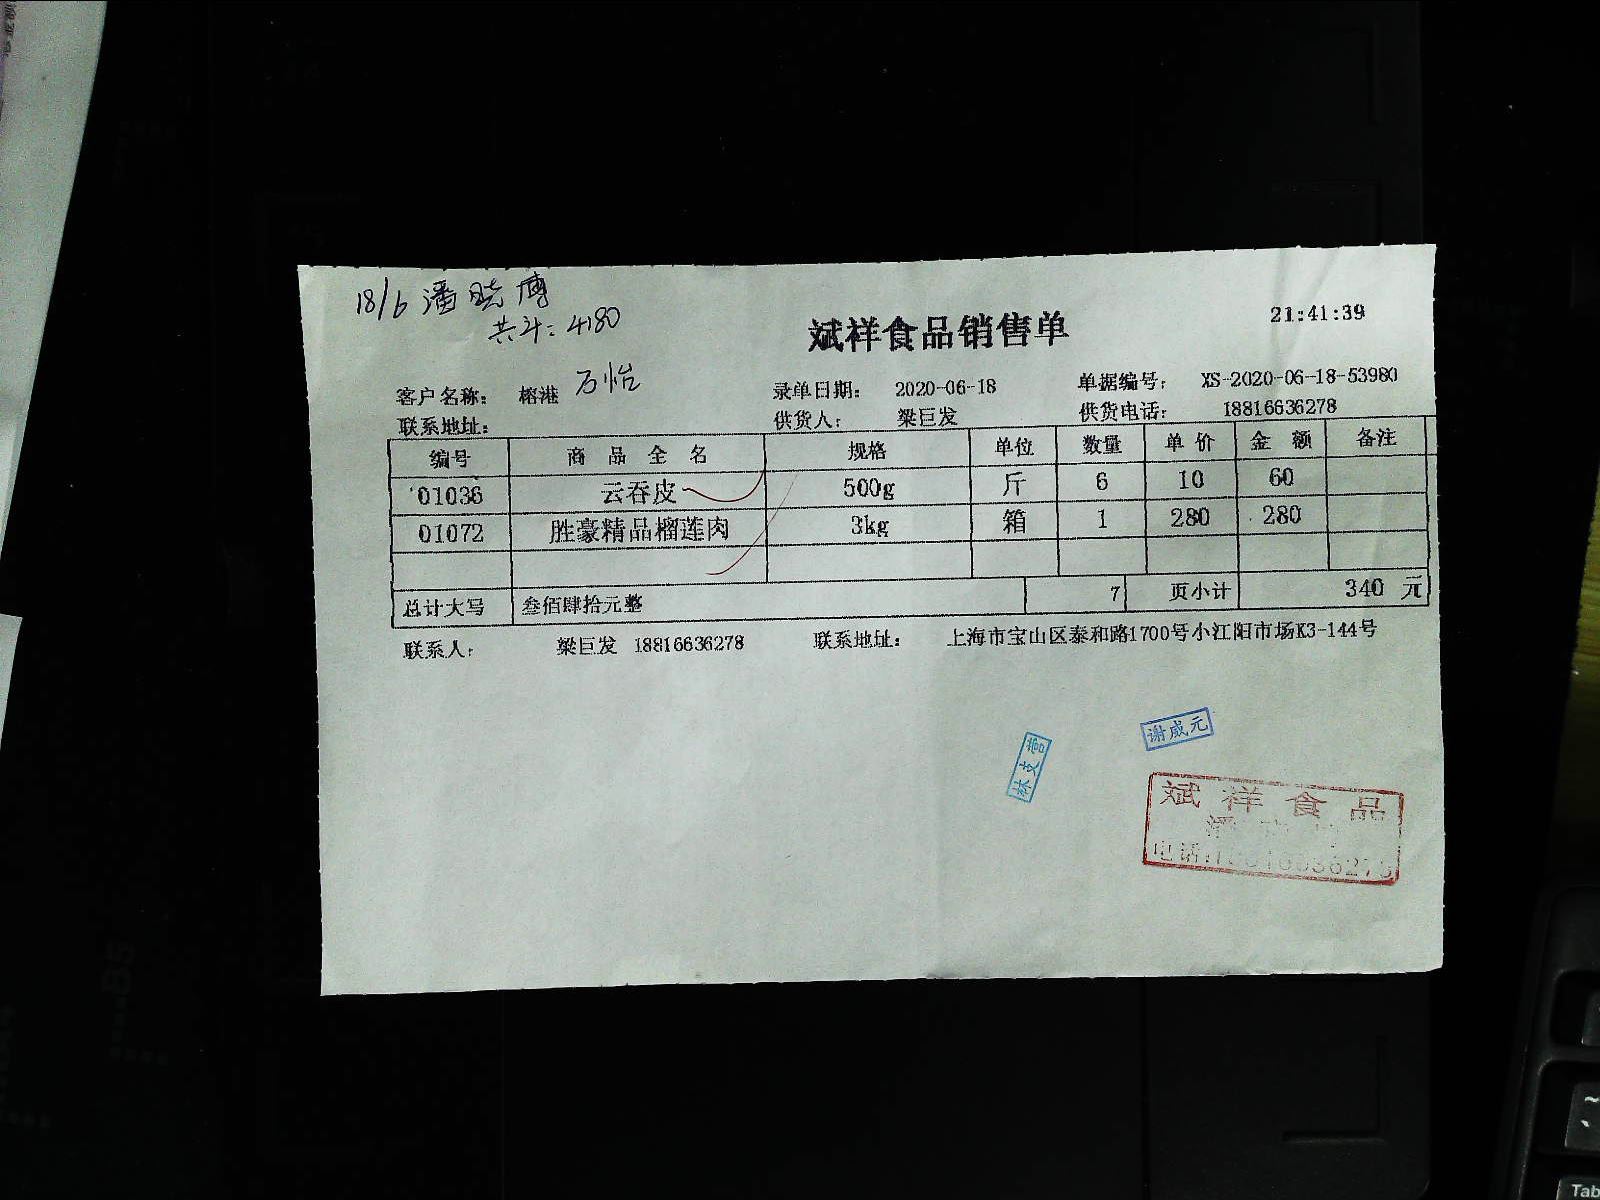 18/6 潘晓傅
共计: 4180
斌祥食品销售单
21:41:39
客户名称: 榕港 万怡
录单日期: 2020-06-18
单据编号: XS-2020-06-18-53980
联系地址:
供货人: 梁巨发
供货电话: 18816636278
编号 商品全名 规格 单位 数量 单价 金额 备注
01036 云吞皮 500g 斤 6 10 60
01072 胜豪精品榴莲肉 3kg 箱 1 280 280
总计大写 叁佰肆拾元整 7 页小计 340 元
联系人: 梁巨发 18816636278 联系地址: 上海市宝山区泰和路1700号小江阳市场K3-144号
谢威元
林支营
斌祥食品
电话:
Tab